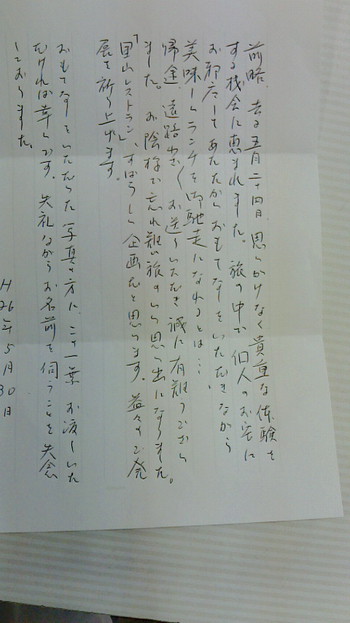 前略、去る五月二十四日、思いがけなく貴重な体験を
する機会に恵まれました。旅の中で個人のお宅に
お邪广してあたたかいおもてなしをいただきながら
美味しいランチを御馳走になれるとは…、
帰途、道路わざ〱お送りいただき誠に有難うござい
ました。お陰様で忘れ難い旅のいい思い出になりました。
「里山レストラン」すばらしい企画だと思います。益々のご発
展を祈り上げます。
おもてなしをいただいた写真の方に、この一葉お渡しいた
だければ幸いです。失礼ながらお名前を伺うことを失念
しておりました。
H26年5月30日